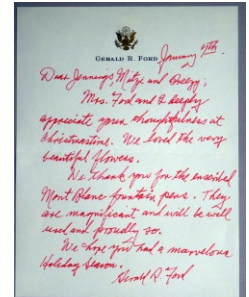 GERALD R. FORD
January 4th.
Dear Jennings, Metze and Breezy;
Mrs. Ford and I deeply
appreciate your thoughtfulness at
Christmastime. We loved the very
beautiful flowers.
We thank you for the
Mont Blanc fountain pens. They
are magnificent and will be well
used and proudly so.
We hope you had a marvelous
Holiday Season.
Gerald R. Ford